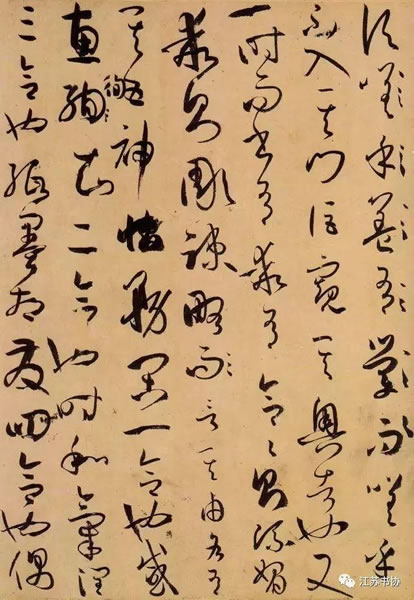 嗟乎
不入其門詎窺其奧者也又
一時而書有乖有合合則流媚
乖則彫疎略而言其由各有
其五神怡務閑一合也感
惠徇知二合也時和氣潤
三合也紙墨相發四合也偶
江苏书协